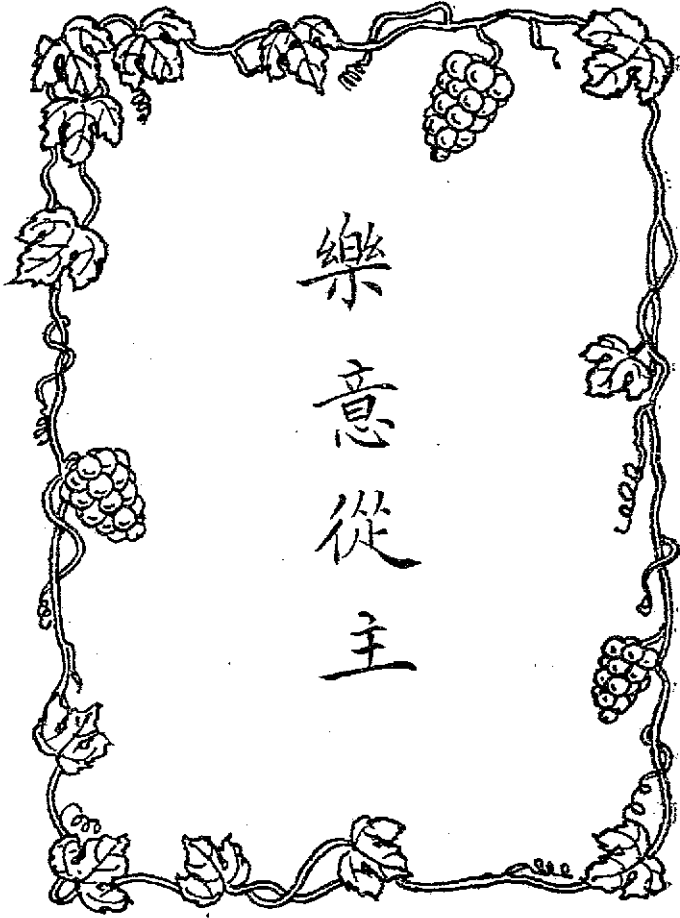 樂意從主